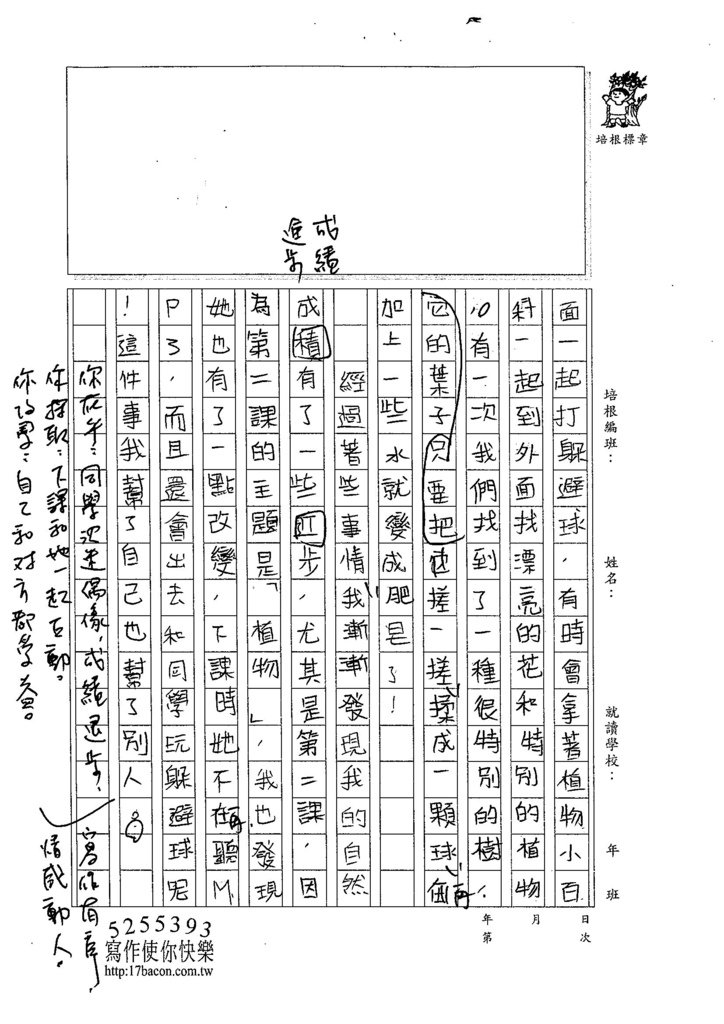 培根標章
成績
進步
培根編班：
姓名：
就讀學校：
年
班
面一起打躲避球，有時會拿著植物小百
科一起到外面找漂亮的花和特別的植物
。有一次我們找到了一種很特別的樹，
它的葉子只要把它搓一搓，揉成一顆球，再
加上一些水就變成肥皂了！
經過著些事情，我漸漸發現我的自然
成積有了一些近步，尤其是第二課，因
為第二課的主題是「植物」，我也發現
她也有了一點改變，下課時她不再聽M
P3，而且還會出去和同學玩躲避球呢
！這件事我幫了自己也幫了別人。
你在
同學沈迷偶像，成績退步，
寫作有序，
你採取：下課和她一起互動。
情感動人。
自己和對方都學會。
日
次
月
年
第
5255393
寫作使你快樂
http:17bacon.com.tw